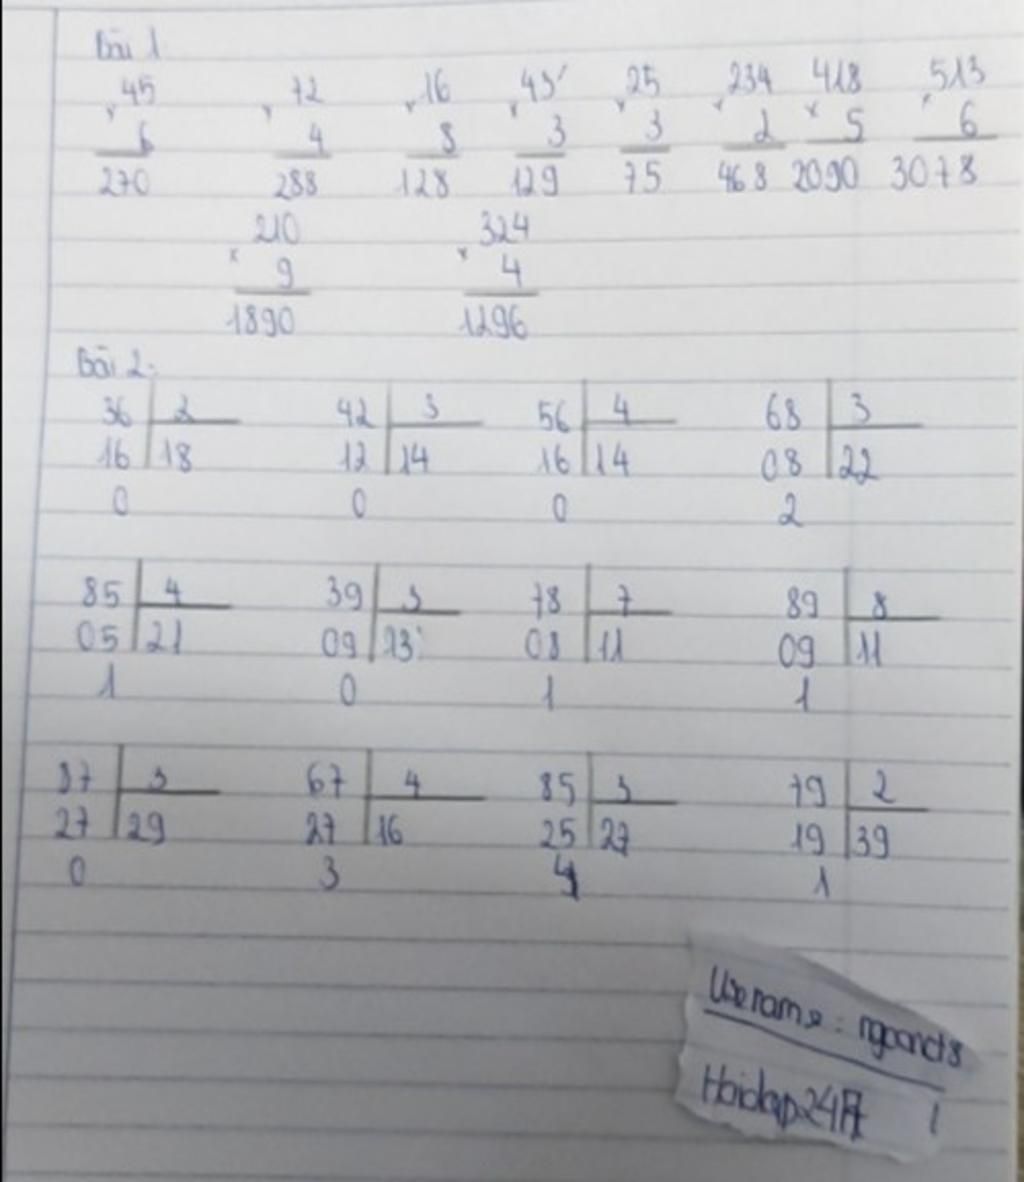 Bài 1
45 72 16 43 25 234 418 513
x 6 x 4 x 8 x 3 x 3 x 2 x 5 x 6
270 288 128 129 75 468 2090 3078
210 324
x 9 x 4
1890 1296
Bài 2:
36 2 42 3 56 4 68 3
16 18 12 14 16 14 08 22
0 0 0 2
85 4 39 3 78 7 89 8
05 21 09 13 08 11 09 11
1 0 1 1
87 3 67 4 85 3 79 2
27 29 27 16 25 27 19 39
0 3 1
Username:
Hoidap247